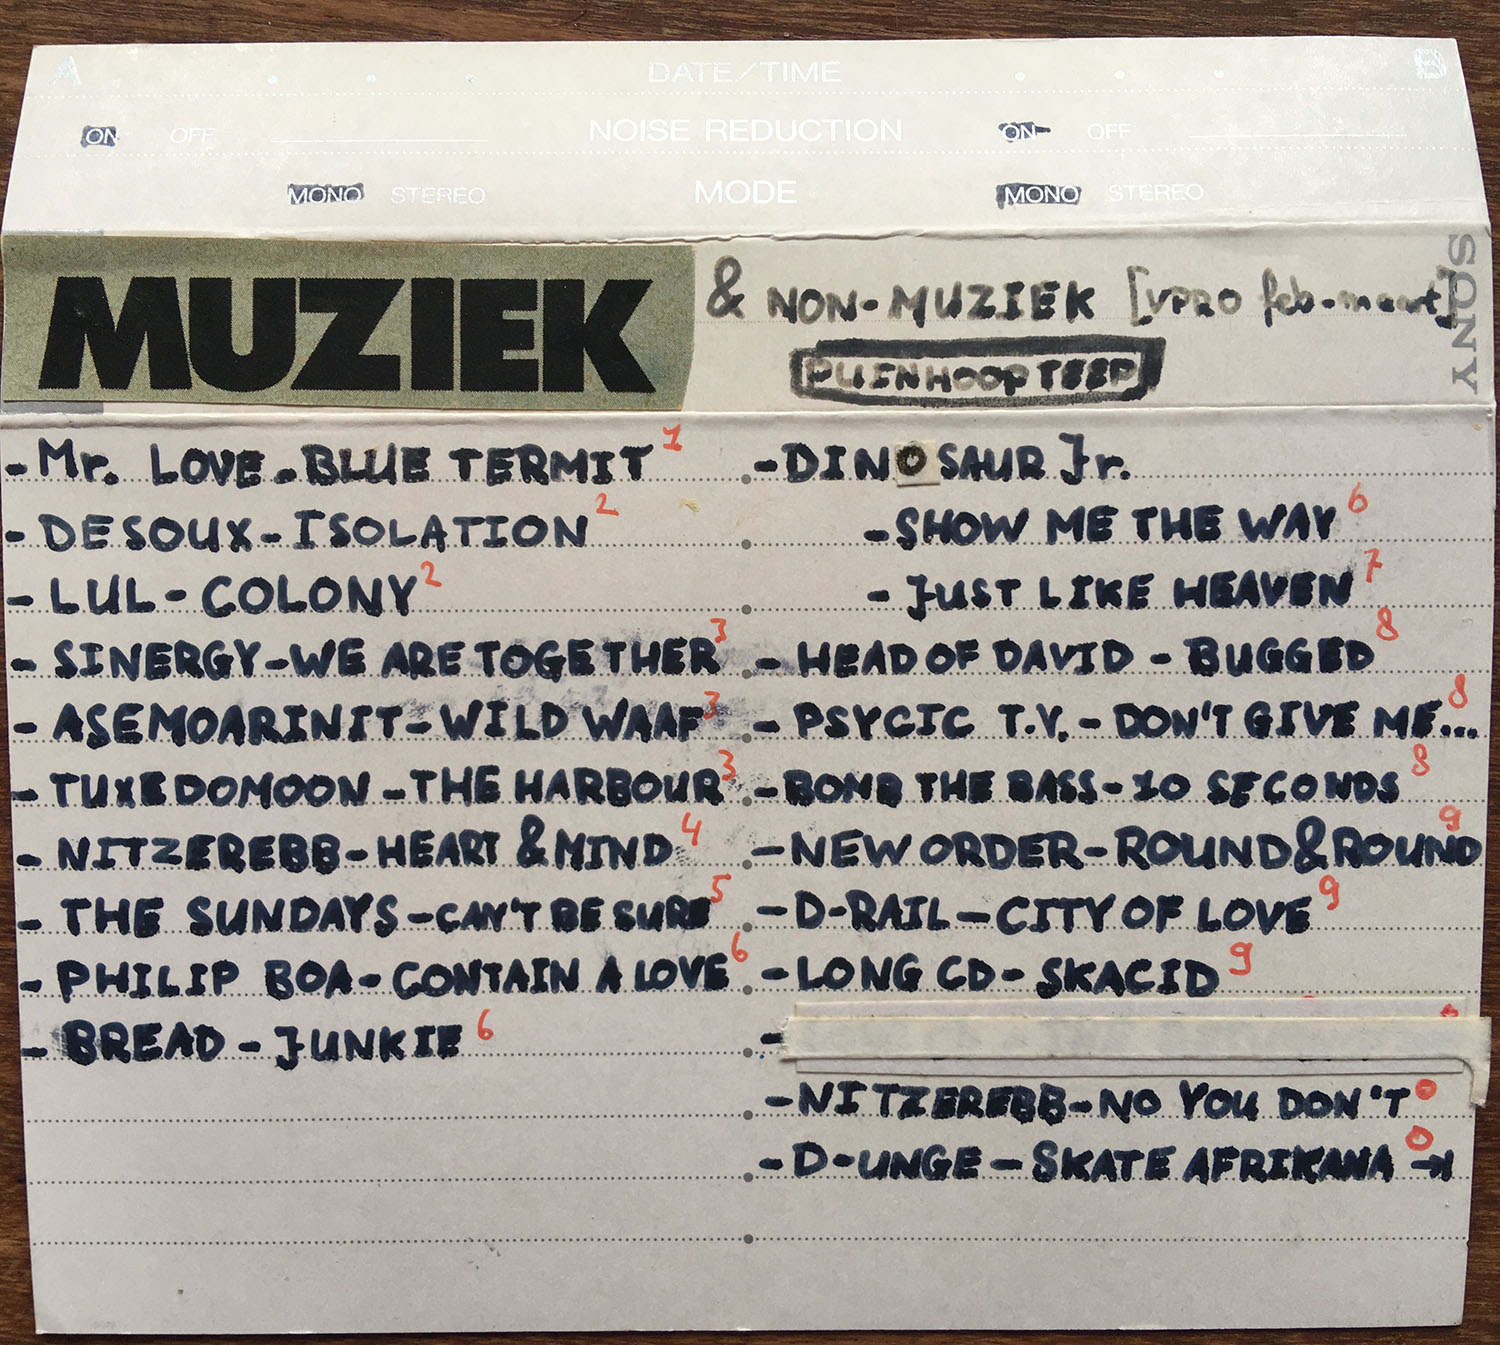 A DATE/TIME B
ON OFF NOISE REDUCTION ON OFF
MONO STEREO MODE MONO STEREO
MUZIEK & NON-MUZIEK [VPRO feb-maart]
PUINHOOPTEEP
SONY
- Mr. LOVE - BLUE TERMIT 1
- DESOUX - ISOLATION 2
- LUL - COLONY 2
- SINERGY - WE ARE TOGETHER 3
- ASEMOARINIT - WILD WAAF 3
- TUXEDOMOON - THE HARBOUR 3
- NITZEREBB - HEART & MIND 4
- THE SUNDAYS - CAN'T BE SURE 5
- PHILIP BOA - CONTAIN A LOVE 6
- BREAD - JUNKIE 6
- DINOSAUR Jr.
- SHOW ME THE WAY 6
- JUST LIKE HEAVEN 7
- HEAD OF DAVID - BUGGED 8
- PSYCIC T.V. - DON'T GIVE ME... 8
- BOMB THE BASS - 10 SECONDS 8
- NEW ORDER - ROUND & ROUND 9
- D-RAIL - CITY OF LOVE 9
- LONG CD - SKACID 9
-
- NITZEREBB - NO YOU DON'T 0
- D-UNGE - SKATE AFRIKANA 0